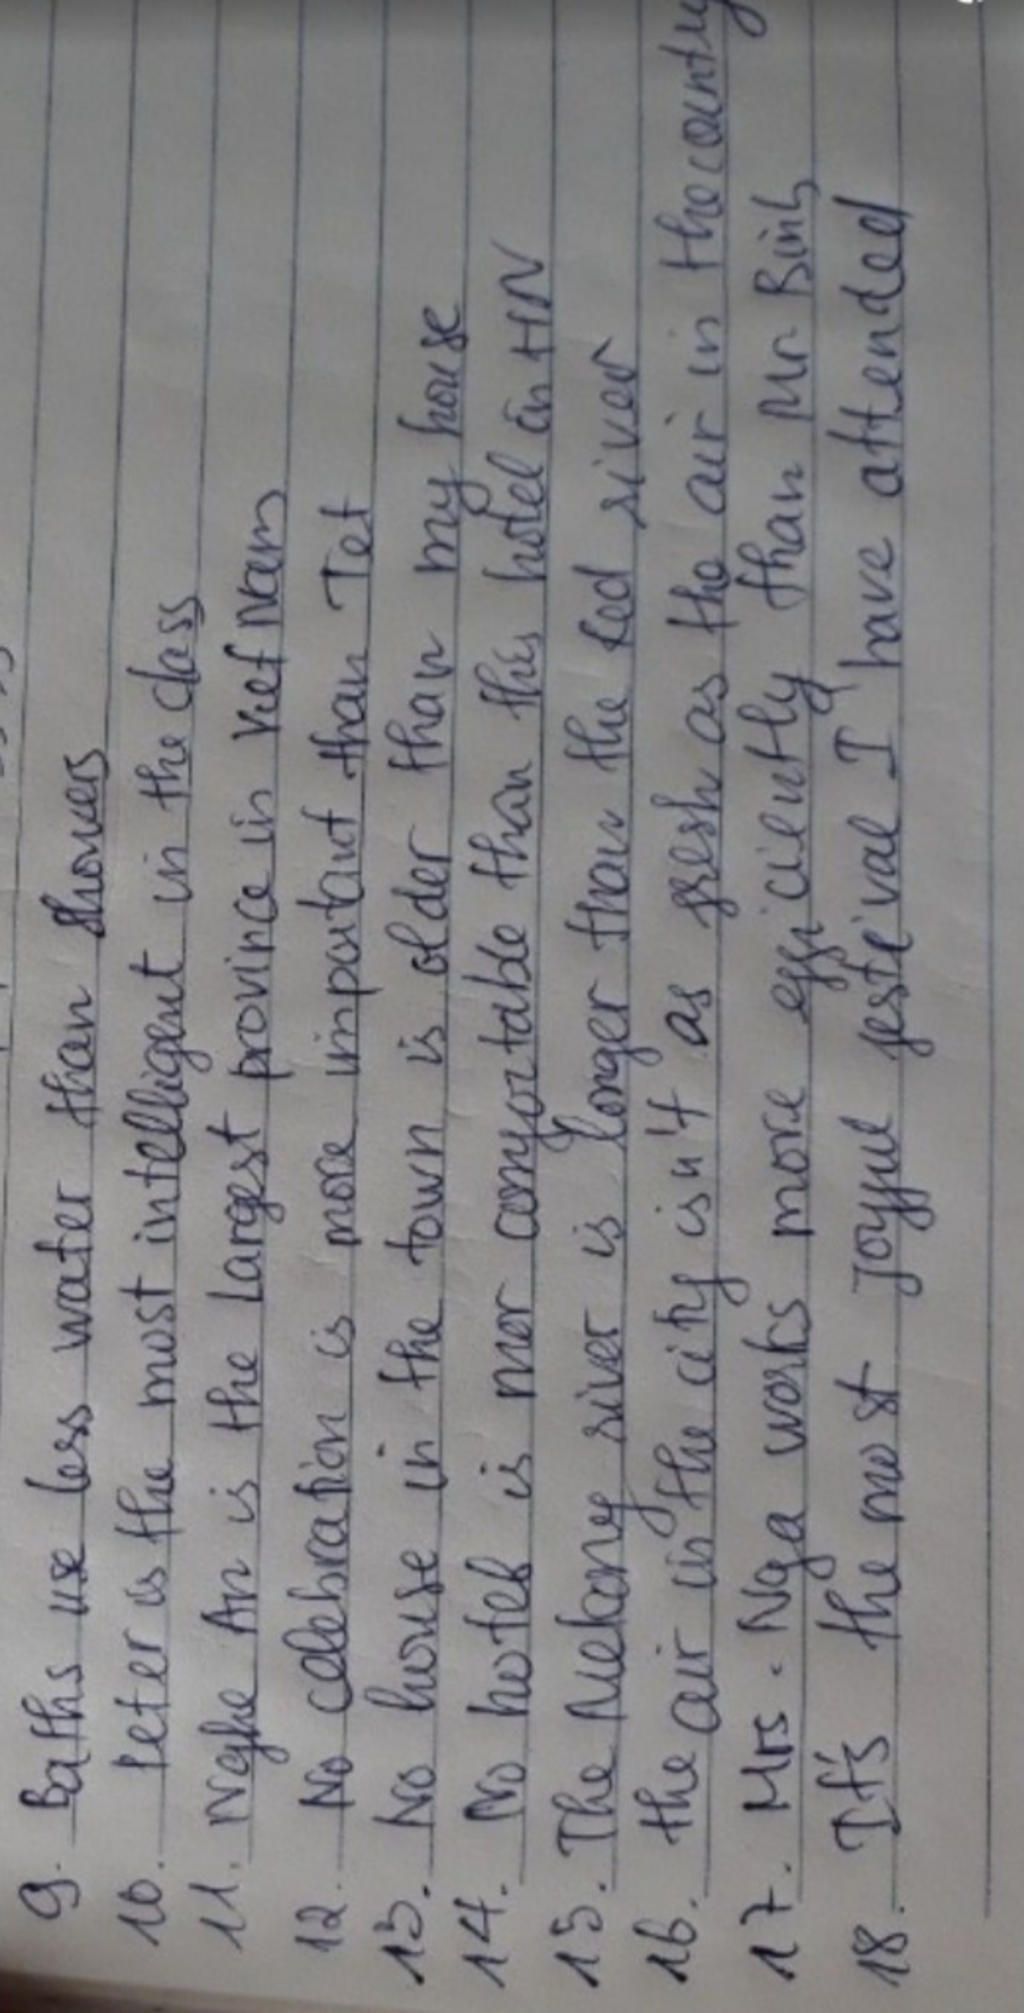 9. Baths use less water than showers
10. Peter is the most intelligent in the class
11. Nghe An is the largest province in Viet Nam
12. No celebration is more important than Tet
13. No house in the town is older than my house
14. No hotel is mor comfortable than this hotel in HN
15. The Mekong river is longer than the Red river
16. the air in the city isn't as fresh as the air in the country
17. Mrs. Nga works more efficiently than Mr Binh
18. It's the most joyful festival I have attended